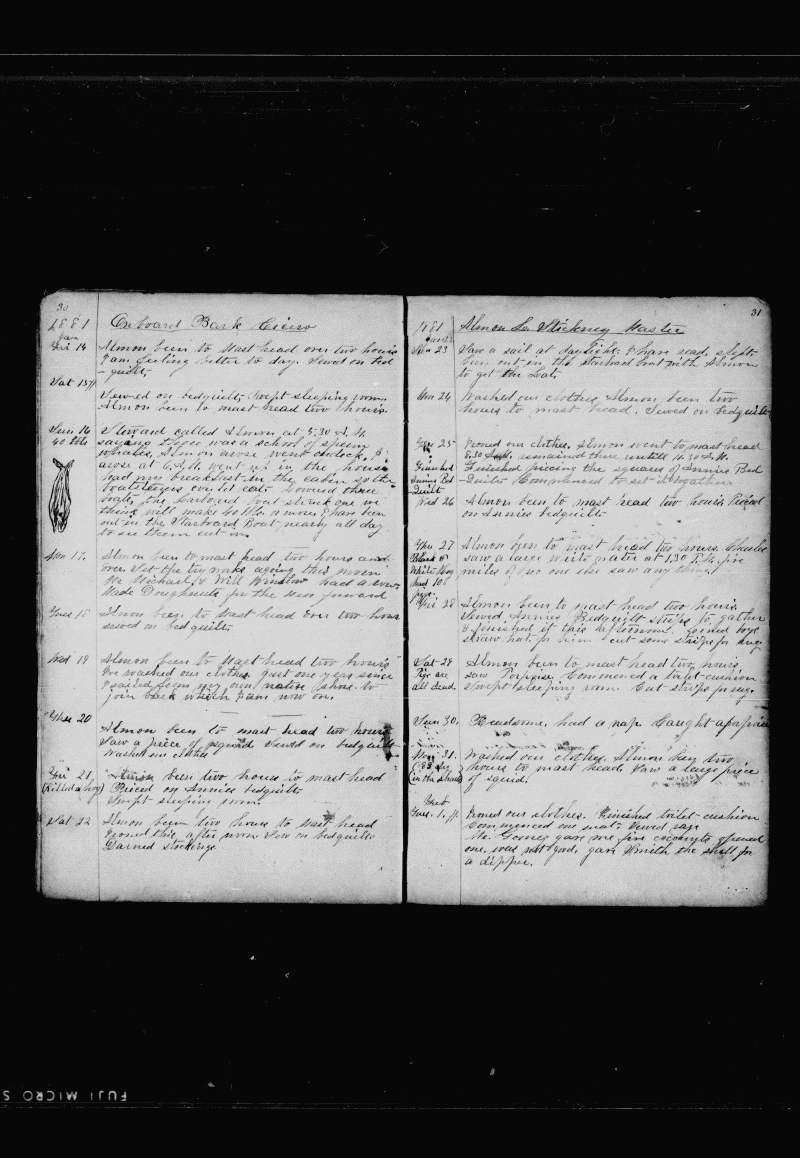 30
1881 Onboard Bark Cicero
Jan
Fri 14 Almon been to Mast head over two hours
I am feeling better to day. Sewed on bed
-quilt.
Sat 15th
Sewed on bedquilt. Swept sleeping room.
Almon been to mast head two hours.
Sun 16 Steward called Almon at 5.30 A.M.
40 bbls saying there was a school of sperm
whales, Almon arose went on deck, I
arose at 6 A.M. went up in the house
had my breakfast in the cabin so the
boatsteerers could eat. Lowered three
boats, the Larboard boat struck one we
think will make 40 bbls or more. I have been
out in the Starboard Boat nearly all day
to see them cut in.
Mon 17. Almon been to mast head two hours and
over. Set the try works agoing this morn
Mr Michael, & Will Winslow had a row.
Made Doughnuts for the Men forward
Tues 18 Almon been to Mast head over two hours
sewed on bedquilt.
Wed 19 Almon been to Mast head two hours
We washed our clothes just one year since
I sailed from my own native shore to
join bark which I am now on.
Thu 20
Almon been to mast head two hours
Saw a piece of squid Sewed on bedquilt
Washed our clothes
Fri 21 Almon been two hours to mast head
(Killed a hog) Pieced on Annies bedquilt
Swept sleeping room.
Sat 22 Almon been two hours to Mast head
Ironed this after noon Sew on bedquilt
Darned stockings.
31
1881 Almon L. Stickney Master
Jan
Sun 23 Saw a sail at daylight. I have read, slept
been out in the Starboard boat with Almon
to get the Lat.
Mon 24 Washed our clothes, Almon been two
hours to mast head. Sewed on bedquilt
25 Ironed our clothes. Almon went to mast head
5.30 remained there untill 10.30 A.M.
Finished Finished piecing the squares of Annies Bed
Annies Bed Quilt Commenced to set it together
Quilt
Wed 26 Almon been to mast head two hours Pieced
on Annies bedquilt.
Thu 27 Almon been to mast head two hours. Charlie
Black & saw a large white water at 1.30 P.M. five
White Hog miles off no one else saw any thing.
had 10
pigs.
Fri 28 Almon been to mast head two hours.
Sewed Annies Bedquilt strips to gather
& finished it this afternoon. Joined
straw hat for him cut some strips for rug
Sat 29 Almon been to mast head two hours
Pigs are saw Porpoise. Commenced a toilet-cushion
all dead. Swept sleeping room Cut strips for rug.
Sun 30. Read some, had a nap. Caught a porpoise
Mon 31. Washed our clothes, Almon been two
hours to mast head, Saw a large piece
(in the shade) of squid.
Feb
Tues. 1. Ironed our clothes. Finished toilet-cushion
Commenced one mat. Sewed rags
Mr. Gomes gave me five cocoanuts opened
one, was not good, gave Smith the shell for
a dipper.
FUJI MICRO S